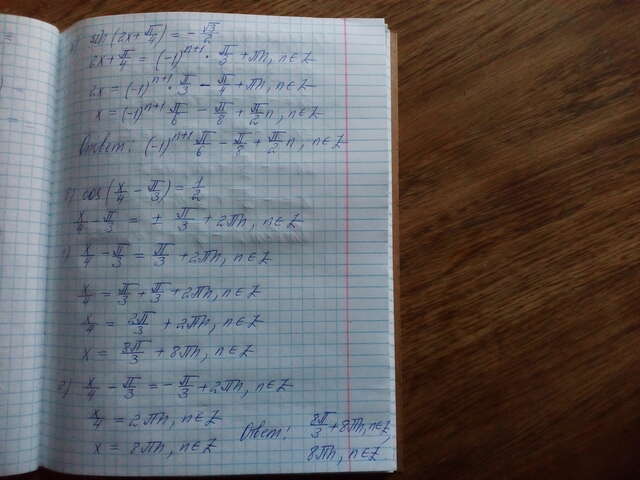 а) sin(2x + π/4) = -√3/2
2x + π/4 = (-1)ⁿ⁺¹ · π/3 + πn, n∈Z
2x = (-1)ⁿ⁺¹ · π/3 - π/4 + πn, n∈Z
x = (-1)ⁿ⁺¹ π/6 - π/8 + π/2 n, n∈Z
Ответ: (-1)ⁿ⁺¹ π/6 - π/8 + π/2 n, n∈Z
cos(x/4 - π/3) = 1/2
x/4 - π/3 = ± π/3 + 2πn, n∈Z
1) x/4 - π/3 = π/3 + 2πn, n∈Z
x/4 = π/3 + π/3 + 2πn, n∈Z
x/4 = 2π/3 + 2πn, n∈Z
x = 8π/3 + 8πn, n∈Z
2) x/4 - π/3 = -π/3 + 2πn, n∈Z
x/4 = 2πn, n∈Z
x = 8πn, n∈Z
Ответ: 8π/3 + 8πn, n∈Z,
8πn, n∈Z